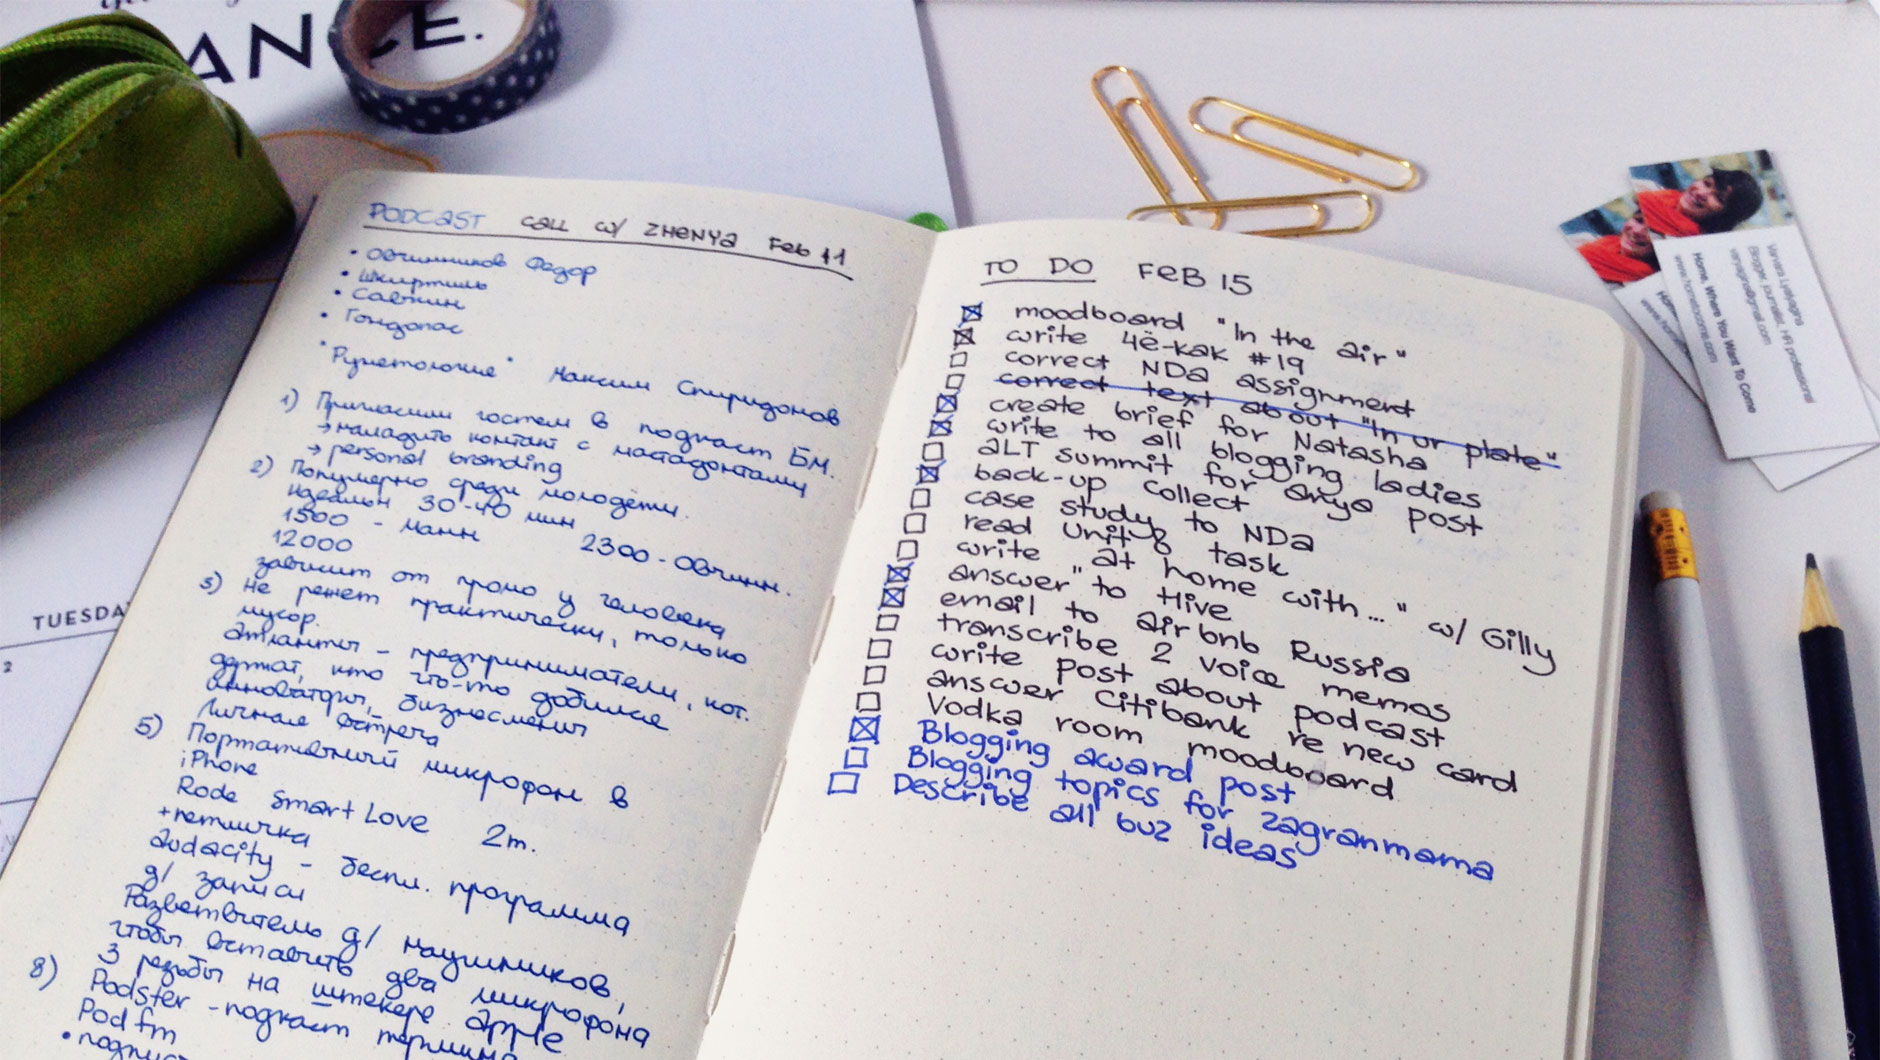 ANCE.
TUESDA
2
PODCAST CALL W/ ZHENYA Feb 11
• Овчинников Федор
• Шкиртиль
• Савкин
• Гондопас
"Рунетология" Максим Спиридонов
1) Пригласили гостем в подкаст БМ.
→ наладить контакт с мастадонтами
→ personal branding
2) Популярно среди молодёжи.
идеальн 30-40 мин
1500 - манн 2300 - Овчинн.
12000
зависит от промо у человека
3) Не режет практически, только
мусор.
атланты - предприниматели, кот.
держат, кто что-то добился
инноваторы, бизнесмены
Личная встреча
5) Портативный микрофон в
iPhone
Rode Smart Love 2m.
+ петличка
audacity - беспл. программа
д/ записи
Разветвитель д/ наушников,
чтобы вставить два микрофона
3 резьбы на штекере apple
8) Podster - подкаст терминал
Pod fm
TO DO FEB 15
moodboard "In the air"
write чё-как #19
correct NDA assignment
correct text about "In ur plate"
create brief for Natasha
write to all blogging ladies
ALT summit for anya post
back-up collect
case study to NDA
read Unit 8 task
write "at home with..." w/ Gilly
answer to Hive
email to airbnb Russia
transcribe 2 voice memos
write post about podcast
answer Citibank re new card
Vodka room moodboard
Blogging award post
Blogging topics for zagranmama
Describe all buz ideas
Varvara Lyalyagina
Blogger, journalist, HR professional
Home, Where You Want To Come